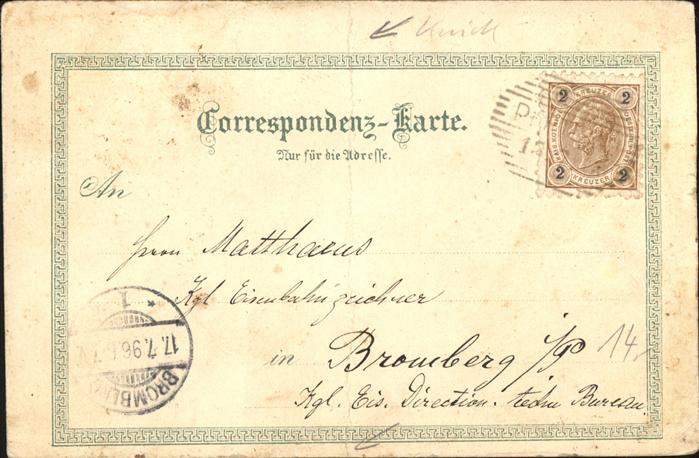 Correspondenz-Karte.
Nur für die Adresse.
2 KREUZER 2
2 KREUZER 2
An
Herrn Matthaeus
Kgl Eisenbahnzeichner
in Bromberg i/P
14,-
Kgl. Eis. Direction. techn Bureau.
17.7.96
BROMBERG
1